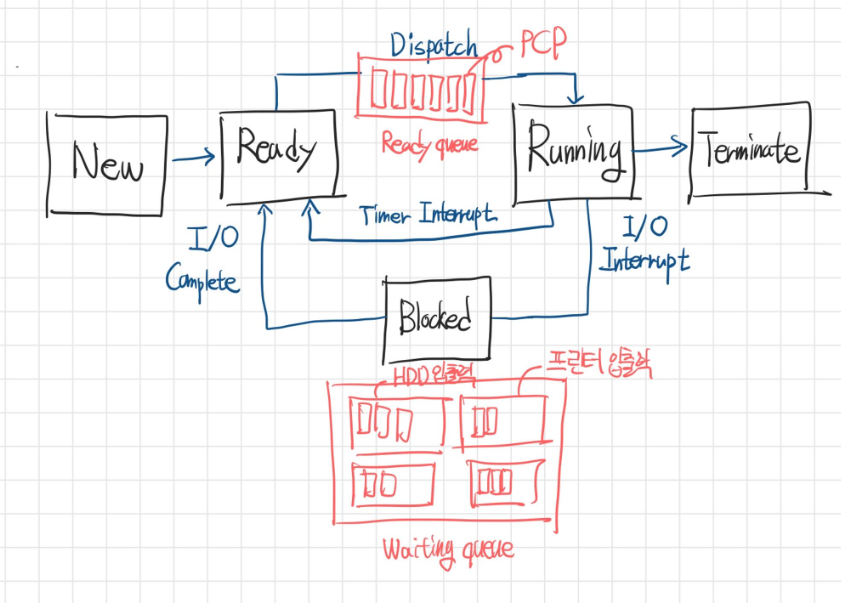 Dispatch
PCP
New
Ready
Ready queue
Running
Terminate
Timer Interrupt
I/O
Complete
I/O
Interrupt
Blocked
HDD 입출력
프린터 입출력
Waiting queue